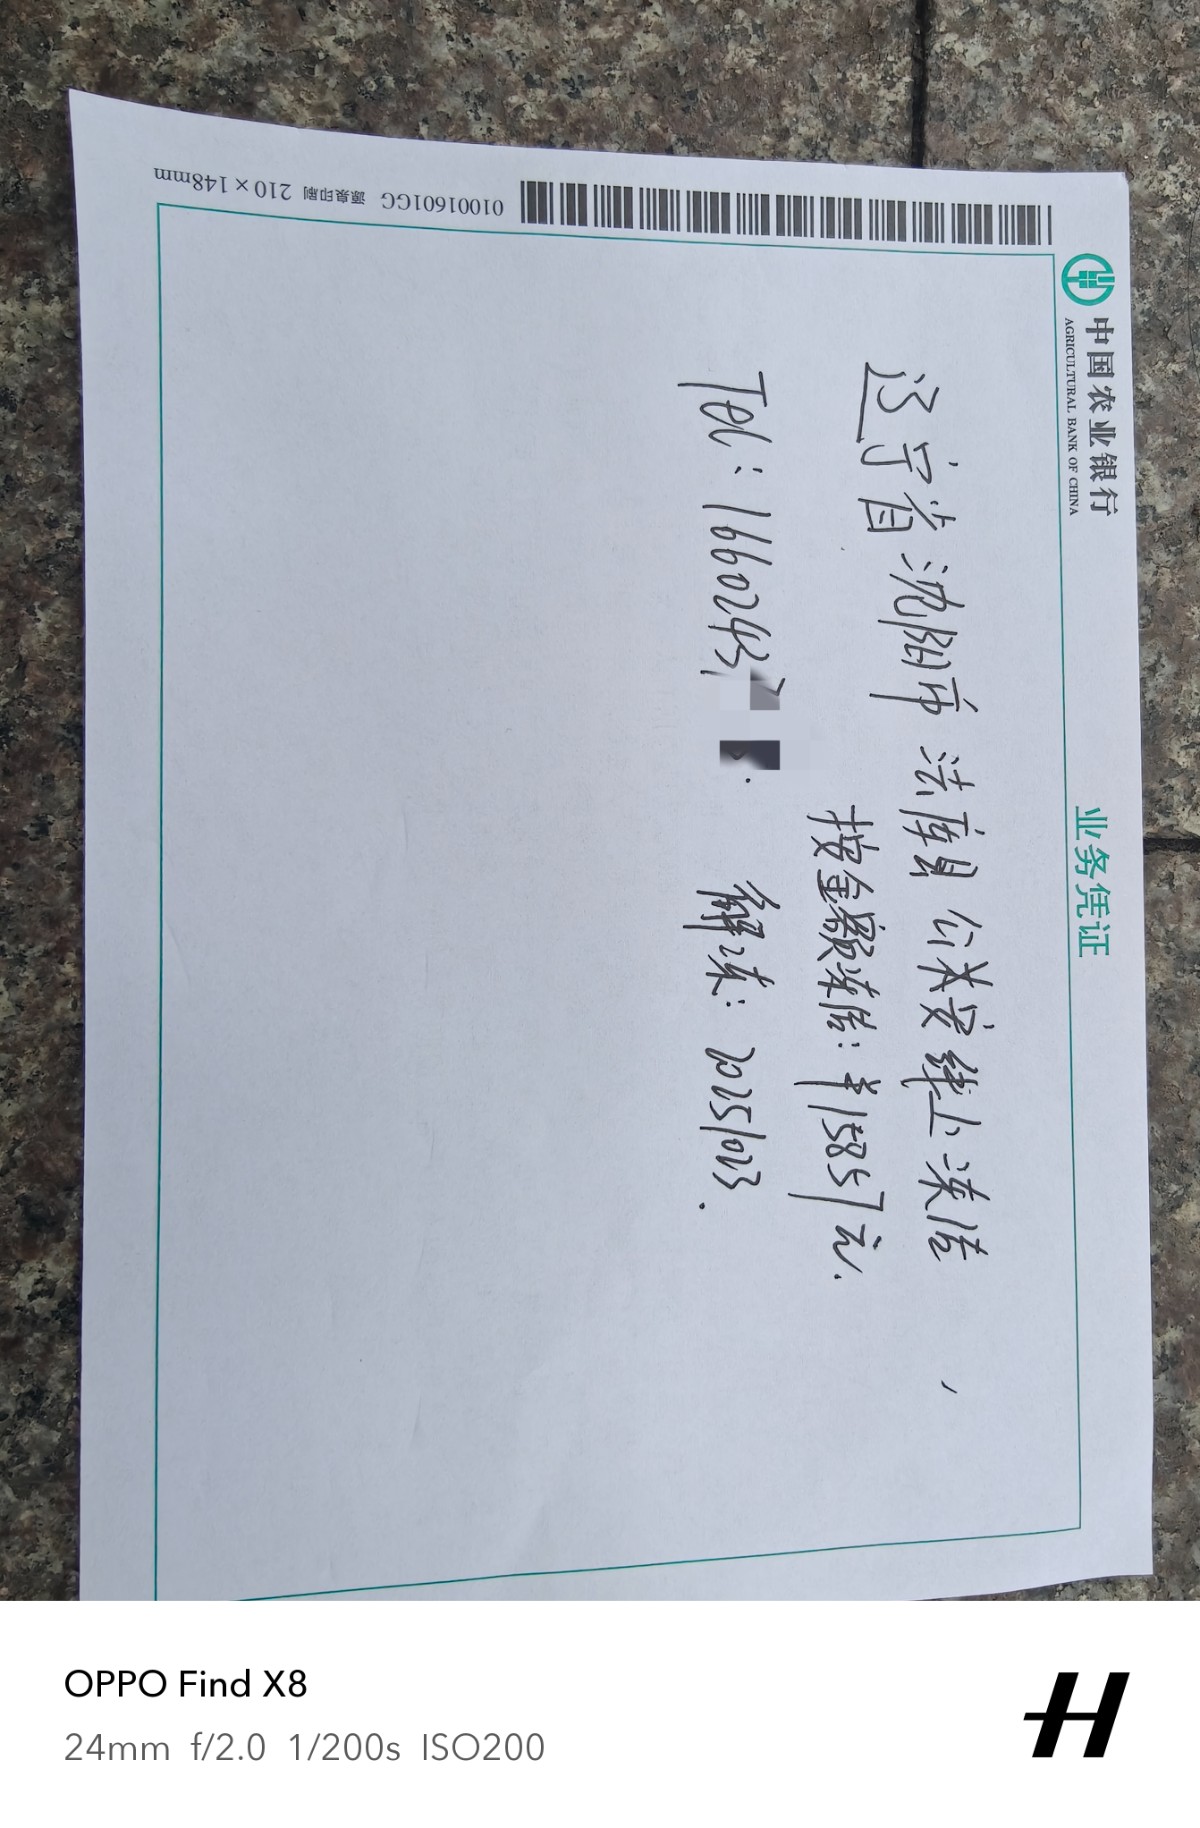 中国农业银行
AGRICULTURAL BANK OF CHINA
业务凭证
01001601GG 源泉印刷 210×148mm
辽宁省沈阳市法库县公安线上冻结
按金额冻结:¥15857元.
Tel:1660243
解冻:20251023.
OPPO Find X8
24mm f/2.0 1/200s ISO200